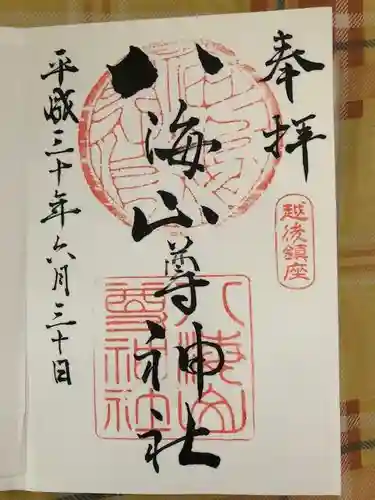 奉拝
越後鎮座
八海山尊神社
八海山
尊神社
平成三十年六月三十日